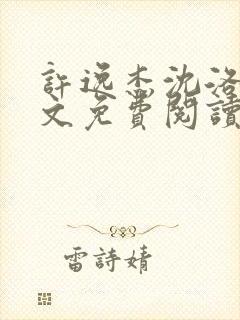 許逸杰沈洛
文免費閱讀
雷詩婧